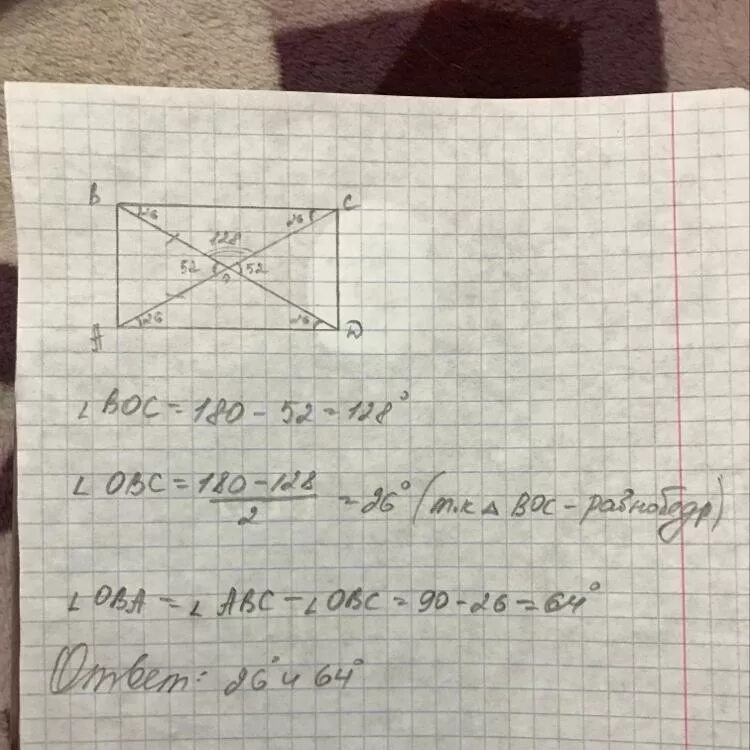 B C
26 26
128
52 52
O
26 26
A D
∠ BOC = 180 - 52 = 128°
∠ OBC = (180 - 128)/2 = 26° (т.к △ BOC - равнобедр)
∠ OBA = ∠ ABC - ∠ OBC = 90 - 26 = 64°
Ответ: 26° и 64°